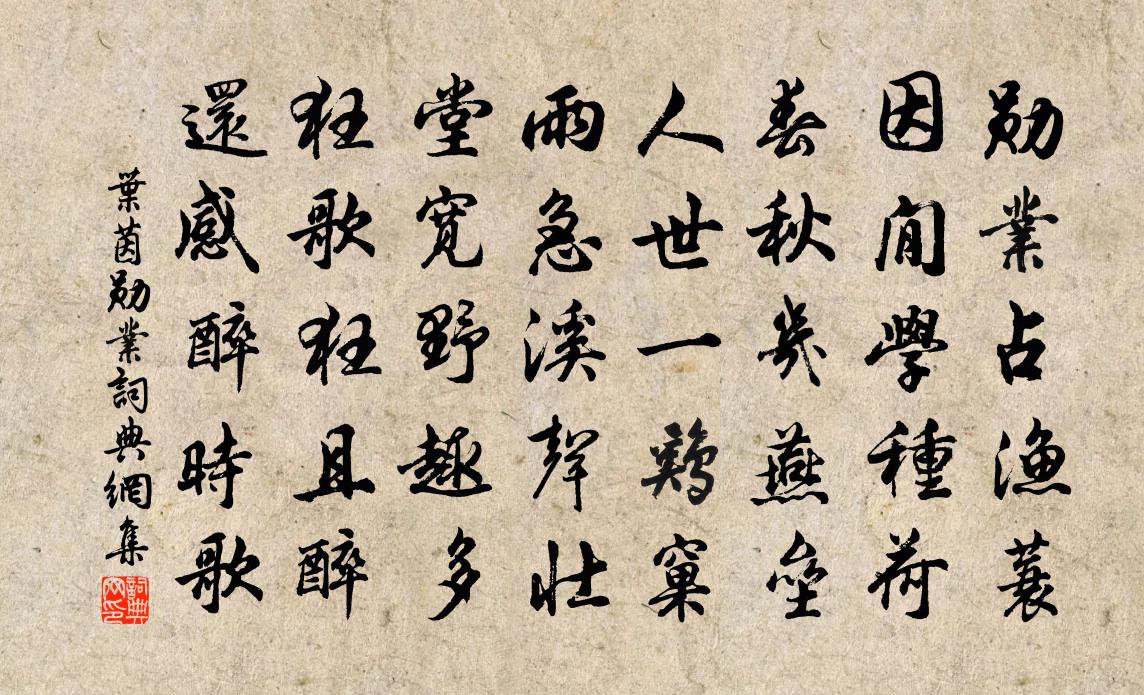 勛業占漁蓑
因閒學種荷
春秋幾燕壘
人世一鷄窠
雨急溪聲壯
堂寬野趣多
狂歌狂且醉
還感醉時歌
葉茵勛業詞典網集
詞典網印